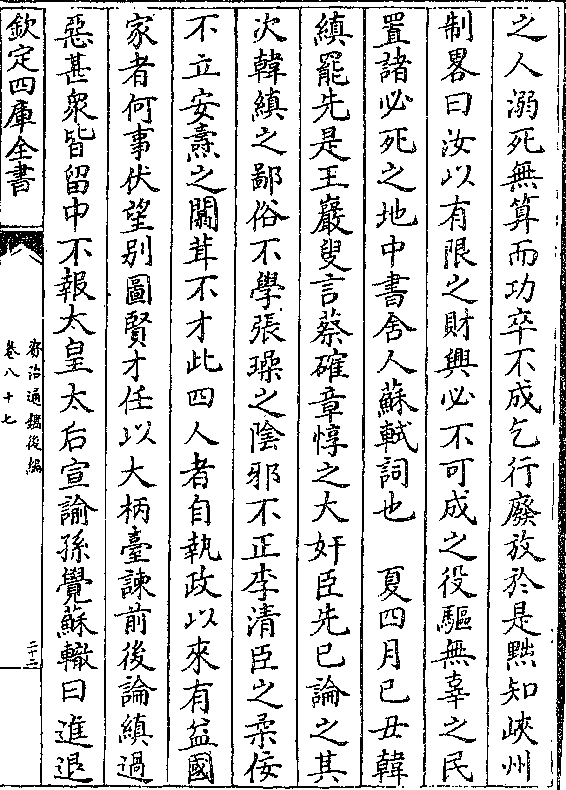 之人溺死無算而功卒不成乞行廢放於是黜知峽州
制畧曰汝以有限之財興必不可成之役驅無辜之民
置諸必死之地中書舍人蘇軾詞也　夏四月己丑韓
縝罷先是王巖叟言蔡確章惇之大奸臣先已論之其
次韓縝之鄙俗不學張璪之陰邪不正李清臣之柔佞
不立安燾之闒茸不才此四人者自執政以來有益國
家者何事伏望别圖賢才任以大柄臺諫前後論縝過
惡甚衆皆留中不報太皇太后宣諭孫覺蘇轍曰進退
欽定四庫全書
資治通鑑後編
卷八十七
二十三